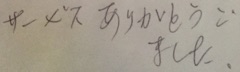 サービス ありがとうござい
ました。